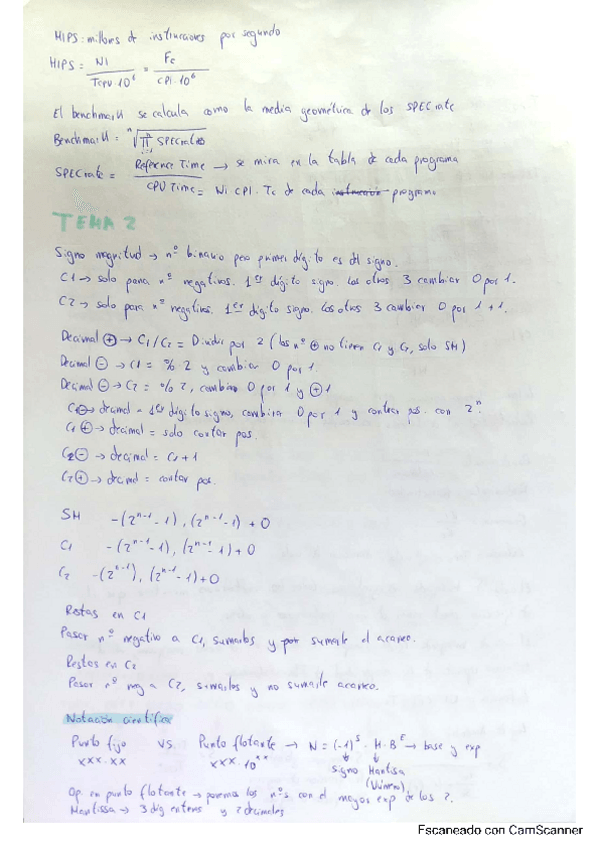 MIPS: millones de instrucciones por segundo
MIPS = NI / Tcpu·10^6 = Fc / CPI·10^6
El benchmark se calcula como la media geométrica de los SPECrate
Benchmark = ⁿ√∏ⁿᵢ₌₁ SPECrates
SPECrate = Reference Time → se mira en la tabla de cada programa
CPU Time = NI CPI · Tc de cada instrucción programa
TEMA 2
Signo magnitud → nº binario pero primer dígito es del signo.
C1 → solo para nº negativos. 1er dígito signo. Los otros 3 cambiar 0 por 1.
C2 → solo para nº negativos. 1er dígito signo. Los otros 3 cambiar 0 por 1 + 1.
Decimal ⊕ → C1/C2 = Dividir por 2 (los nº ⊕ no tienen C1 y C2, solo SM)
Decimal ⊖ → C1 = % 2 y cambiar 0 por 1.
Decimal ⊖ → C2 = % 2, cambiar 0 por 1 y ⊕1
C1⊖ → decimal = 1er dígito signo, cambiar 0 por 1 y contar pos. con 2ⁿ.
C1 ⊕ → decimal = solo contar pos.
C2⊖ → decimal = C1 + 1
C2⊕ → decimal = contar pos.
SM -(2ⁿ⁻¹-1), (2ⁿ⁻¹-1) + 0
C1 -(2ⁿ⁻¹-1), (2ⁿ⁻¹-1) + 0
C2 -(2ⁿ⁻¹), (2ⁿ⁻¹-1) + 0
Restas en C1
Pasar nº negativo a C1, sumarlos y sumarle el acarreo.
Restas en C2
Pasar nº neg a C2, sumarlos y no sumarle acarreo.
Notación científica
Punto fijo vs. Punto flotante → N = (-1)^S · M · B^E → base y exp
xxx.xx xxx.10^xx signo Mantisa
(Número)
Op. en punto flotante → ponemos los nºs con el mayor exp de los 2.
Mantissa → 3 díg enteros y 2 decimales
Escaneado con CamScanner